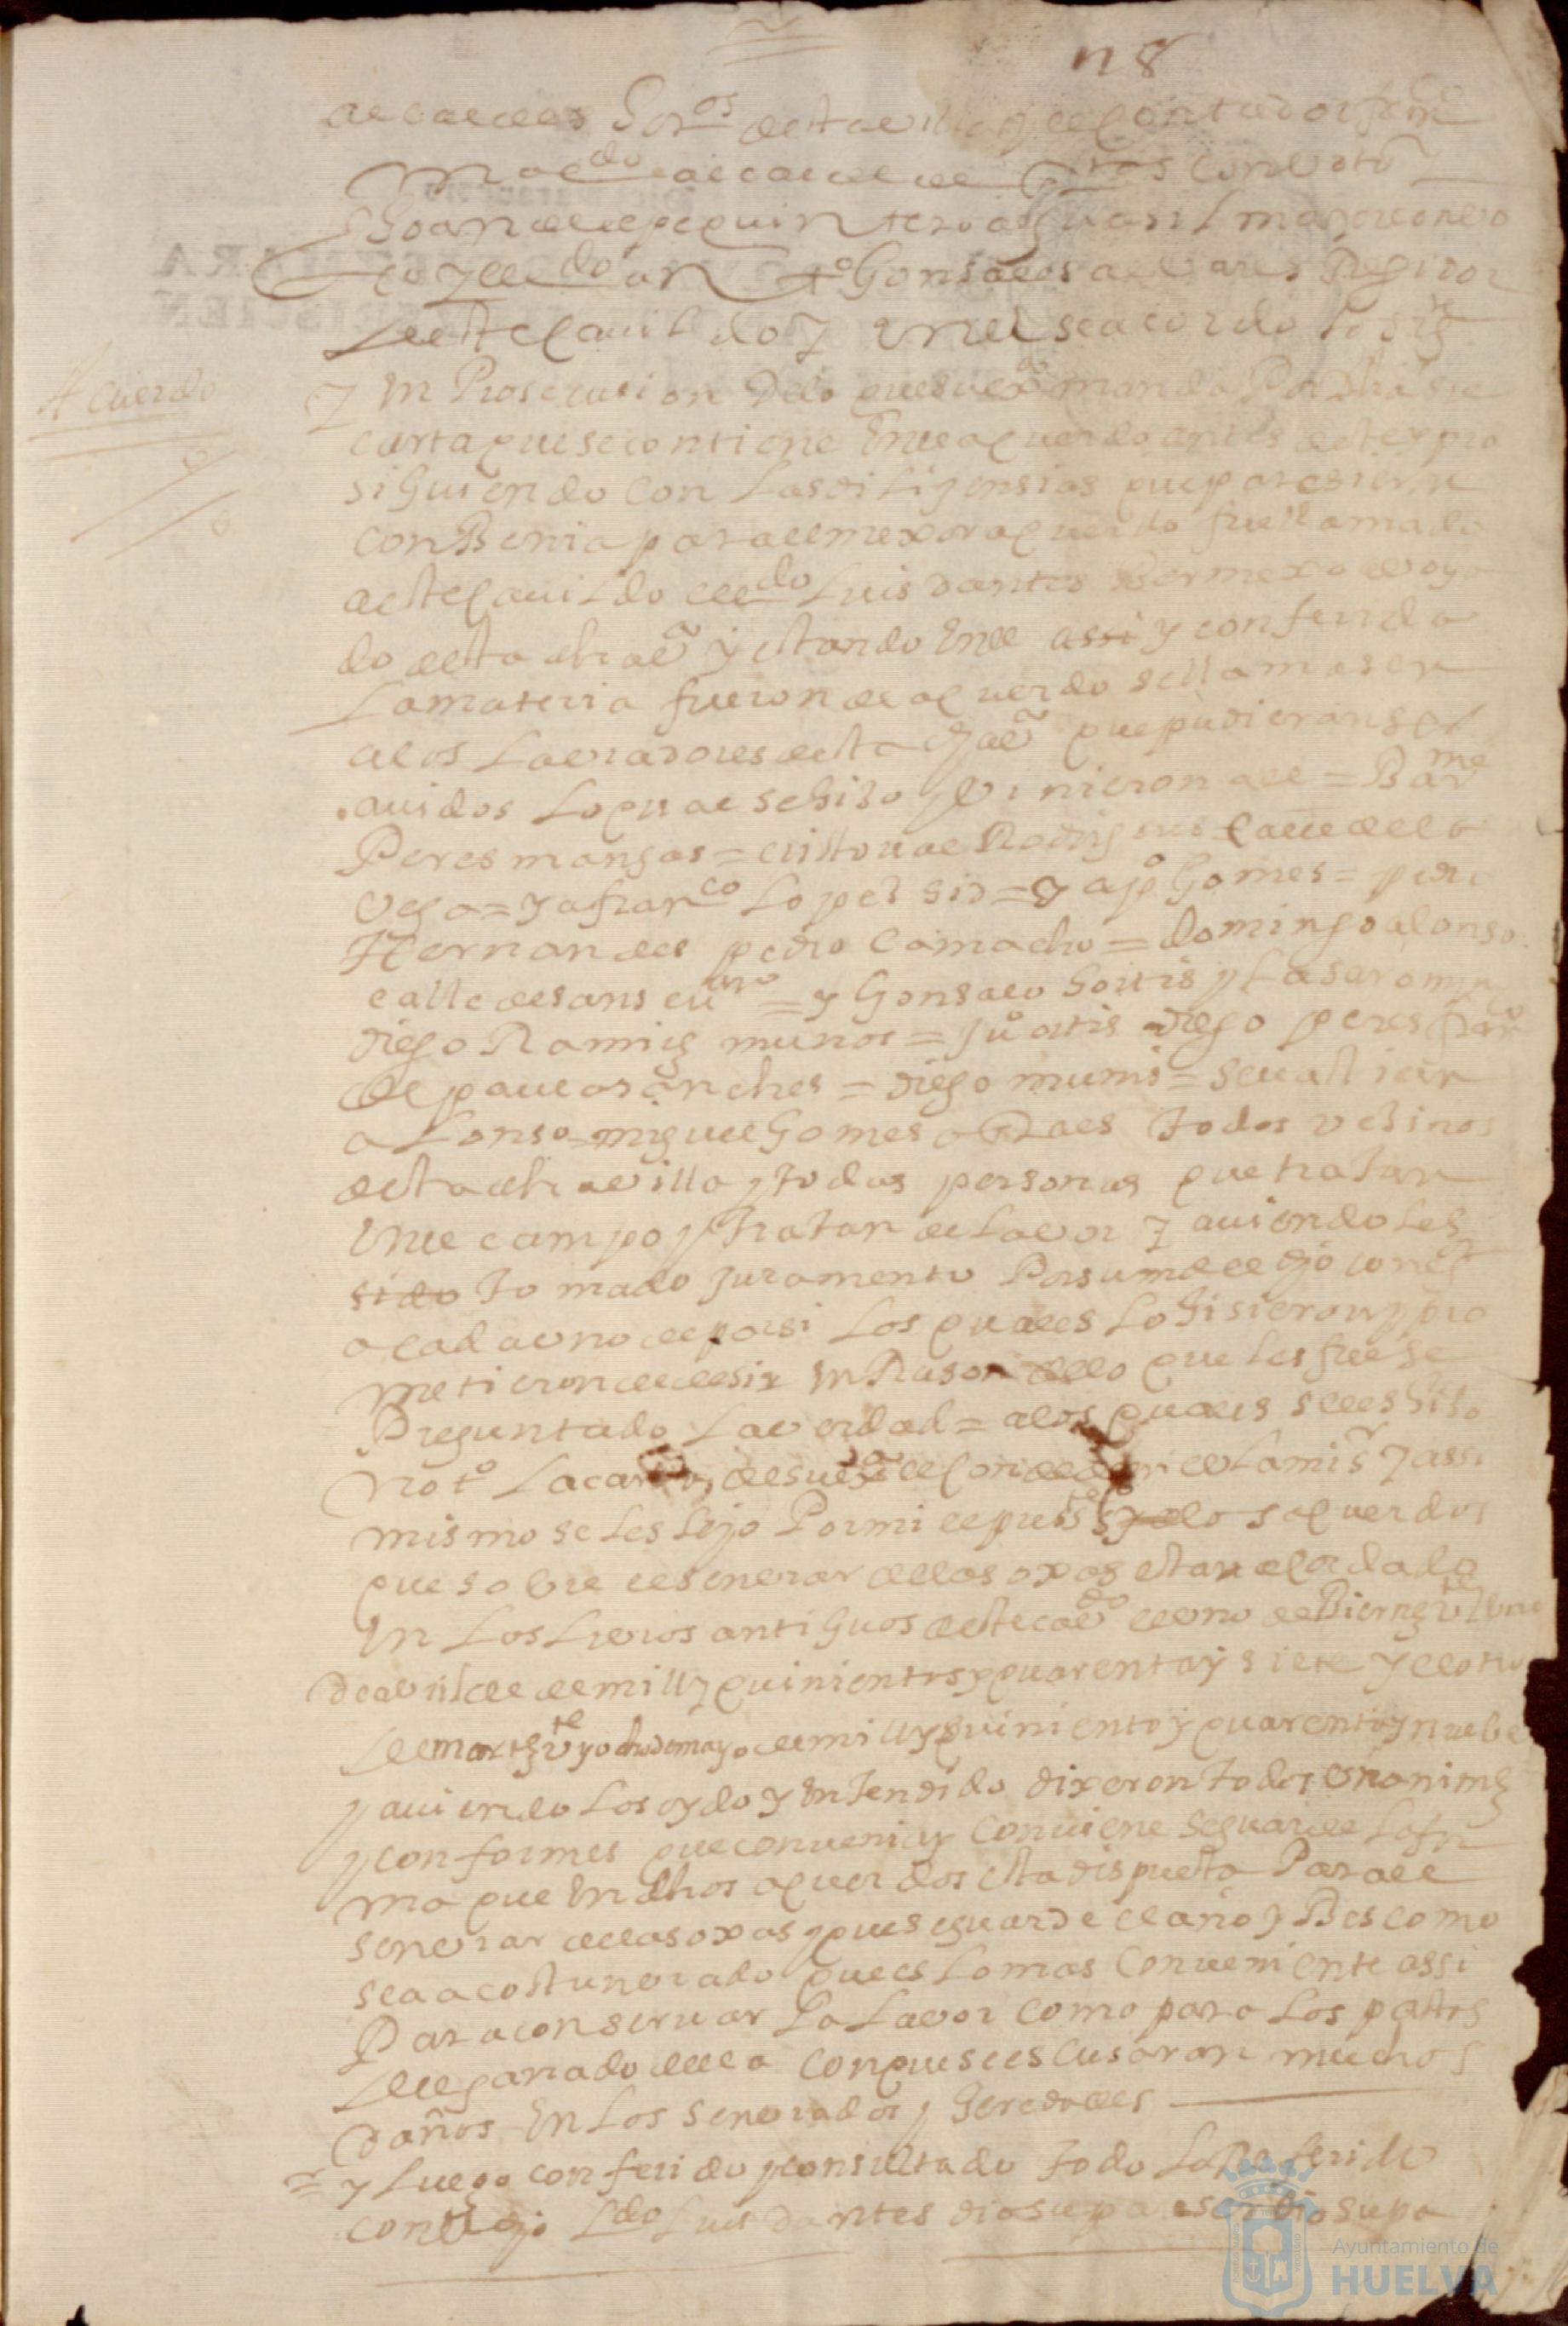 n 8
alcaldes hor.os desta villa y el contador fran.co
m
alcalde
con voto
Joan de lepe quintero alguasil mayor
y el l.do an to Gonsales alvares Regidor
deste cavildo y en el se acordo lo sig.te
Acuerdo
y en Prosecusion de lo que su ex.a manda Por dha su
carta que se contiene en el aquerdo antes deste y pro
siguiendo con las diligensias que paresieron
conBenia para el mexor aquerdo fue llamado
a este cavildo el l.do Luis dantes Bermexo avoga
do desta dha v.a y estando en el assi y conferida
la materia fueron de aquerdo se llamasen
a los labradores desta dha v.a que pudieran ser
avidos lo qual se hiso y vinieron a el = Bar.me
Peres mangas = cristoval Rodrig calle de la
vega = y a fran.co Lopes Sid = y a p.o Gomes = pedro
Hernandes pedro Camacho = domingo alonso
calle de san sev = y Gonsalo hortis y
diego Ramires munos = ju.o ortis diego peres
de palva sanches = diego munis = sevastian
alonso = miguel Gomes todos vesinos
desta dha villa y todas personas que tratan
en el campo y tratan de lavor y aviendoles
sido tomado juramento Por su md el dho correg
a cada uno de por si los quales lo hisieron y pro
metieron de desir en Rason de lo que les fuese
Preguntado la verdad = a los quales se les hiso
not.o la carta de su ex.a el Conde mi s.r y assi
mismo se les leyo Por mi el pres.te s.no los aquerdos
que sobre el senerar de las oxas estan acordado
en los livros antiguos deste cav.do el uno de Biernes v.te y uno
de avril de mill y quinientos y quarenta y siete y el otro
de martes v.te y ocho de mayo de mill y quinientos y quarenta y nuebe
y aviendolos oydo y entendido dixeron todos unanimes
y conformes que convenia y conviene se guarde la for
ma que en dhos aquerdos esta dispuesta Para el
senerar de las oxas y que se guarde el año y Bes como
se a acostunbrado que es lo mas conveniente assi
Para conservar la lavor como para los pastos
del ganado della con que se escusaran muchos
daños en los senbrados y heredades
= y luego conferido y consultado todo lo Referido
con el dho l.do Luis dantes dio su pareser dio su pa
Ayuntamiento de
HUELVA